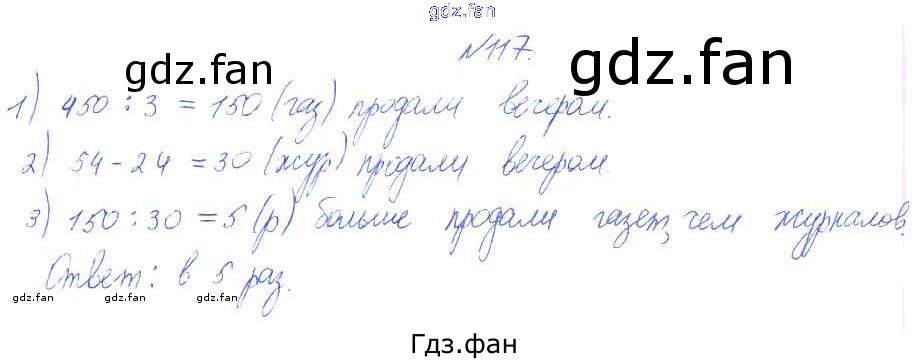 gdz.fan
№117.
gdz.fan gdz.fan
1) 450 : 3 = 150 (газ) продали вечером.
2) 54 - 24 = 30 (жур) продали вечером.
3) 150 : 30 = 5 (р) больше продали газет, чем журналов.
Ответ: в 5 раз.
gdz.fan gdz.fan gdz.fan gdz.fan
Гдз.фан